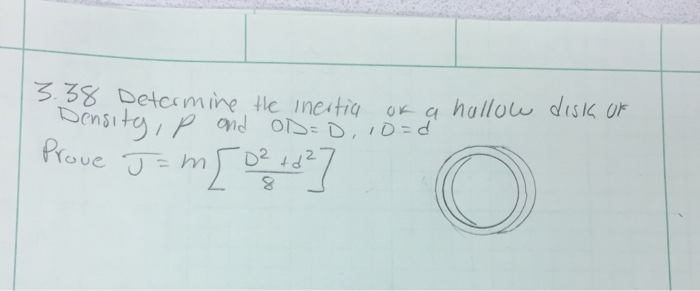 3.38 Determine the inertia of a hallow disk of
Density, ρ and OD=D, ID=d
Prove J = m[D² + d² / 8]